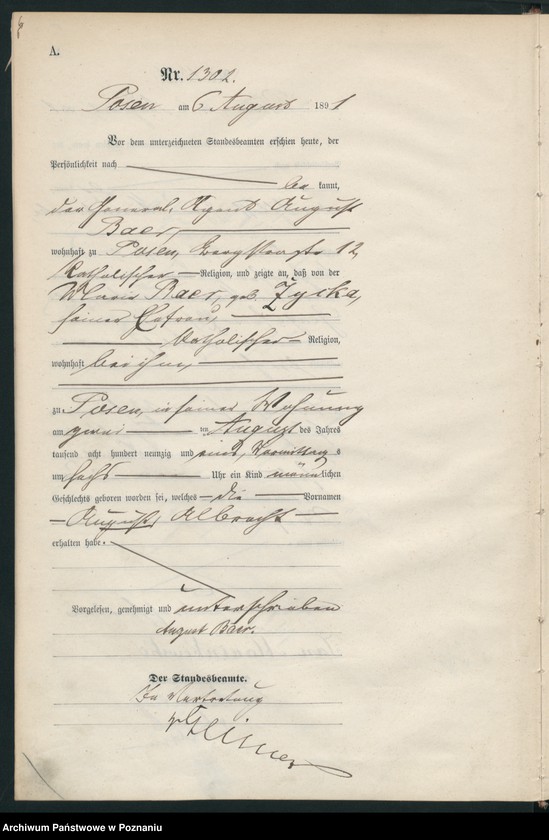 A.
Nr. 1302.
Posen am 6 August 1891
Vor dem unterzeichneten Standesbeamten erschien heute, der
Persönlichkeit nach
be kannt,
der General-Agent August
Baer,
wohnhaft zu Posen, Bergstraße 12,
katholischer Religion, und zeigte an, daß von der
Maria Baer, geb. Zyska,
seiner Ehefrau,
katholischer Religion,
wohnhaft bei ihm,
zu Posen, in seiner Wohnung
am zwei ten August des Jahres
tausend acht hundert neunzig und eins, Vormittag s
um sechs Uhr ein Kind männlichen
Geschlechts geboren worden sei, welches die Vornamen
August, Albrecht
erhalten habe.
Vorgelesen, genehmigt und unterschrieben
August Baer.
Der Standesbeamte.
In Vertretung
Archiwum Państwowe w Poznaniu